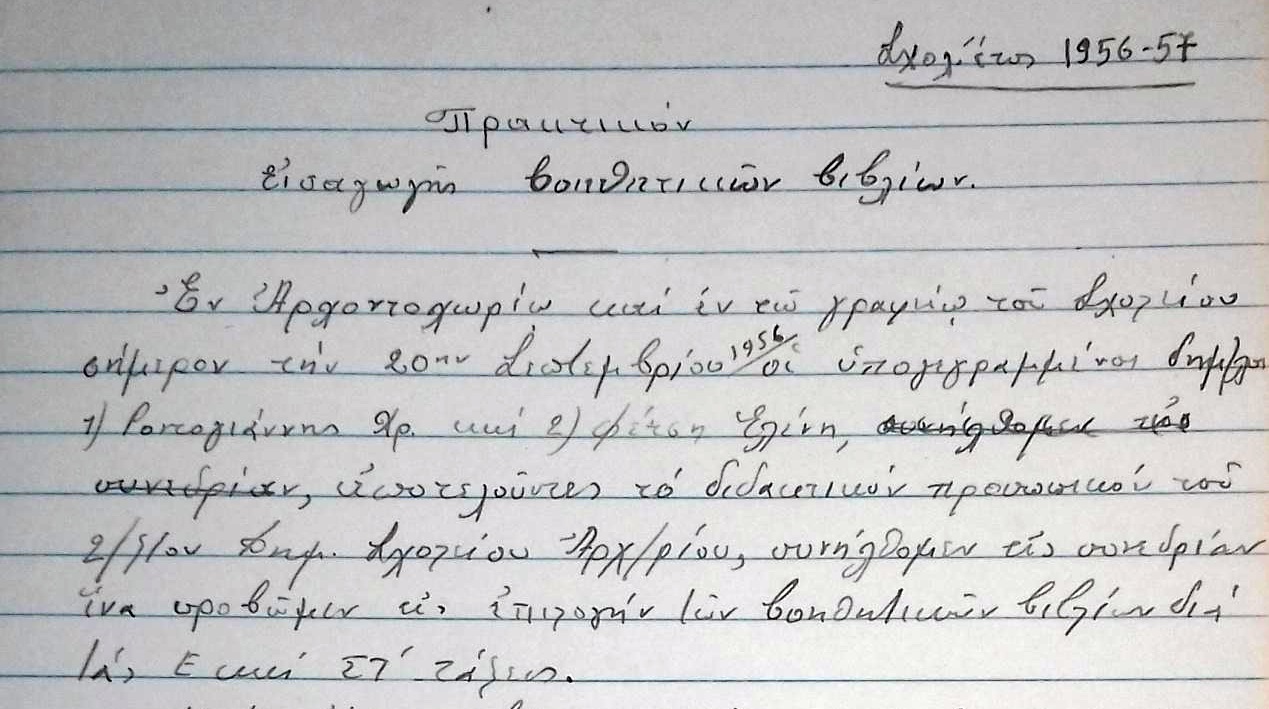 Σχολ. ἔτος 1956-57
Πρακτικόν
εἰσαγωγῆς βοηθητικῶν βιβλίων.
Ἐν Ἀρχοντοχωρίῳ καί ἐν τῷ γραφείῳ τοῦ Σχολείου
σήμερον τήν 20ην Σεπτεμβρίου 1956 οἱ ὑπογεγραμμένοι δημ/λοι
1) Ροντογιάννης Χρ. καί 2) Φέτση Ἑλένη, συνήλθομεν εἰς
συνεδρίαν, ἀποτελοῦντες τό διδακτικόν προσωπικόν τοῦ
2/ξίου Δημ. Σχολείου Ἀρχ/ρίου, συνήλθομεν εἰς συνεδρίαν
ἵνα προβῶμεν εἰς ἐπιλογήν τῶν βοηθητικῶν βιβλίων διά
τάς Ε καί ΣΤ΄ τάξεις.